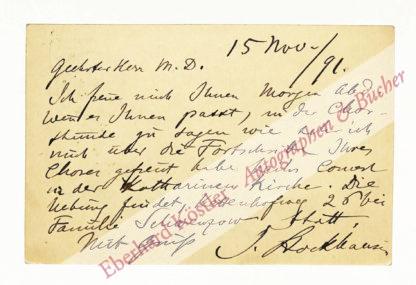 15 Nov. /91.
Geehrter Herr M. D.
Ich freue mich Ihnen Morgen Abd
wenn es Ihnen passt, in der Chor-
stunde zu sagen wie sehr ich
mich über die Fortschritte Ihres
Chores gefreut habe
in der Katharinen Kirche. Die
Uebung findet 26 bei
Familie statt,
Mit Gruß J. Stockhausen
Eberhard Köstler Autographen & Bücher